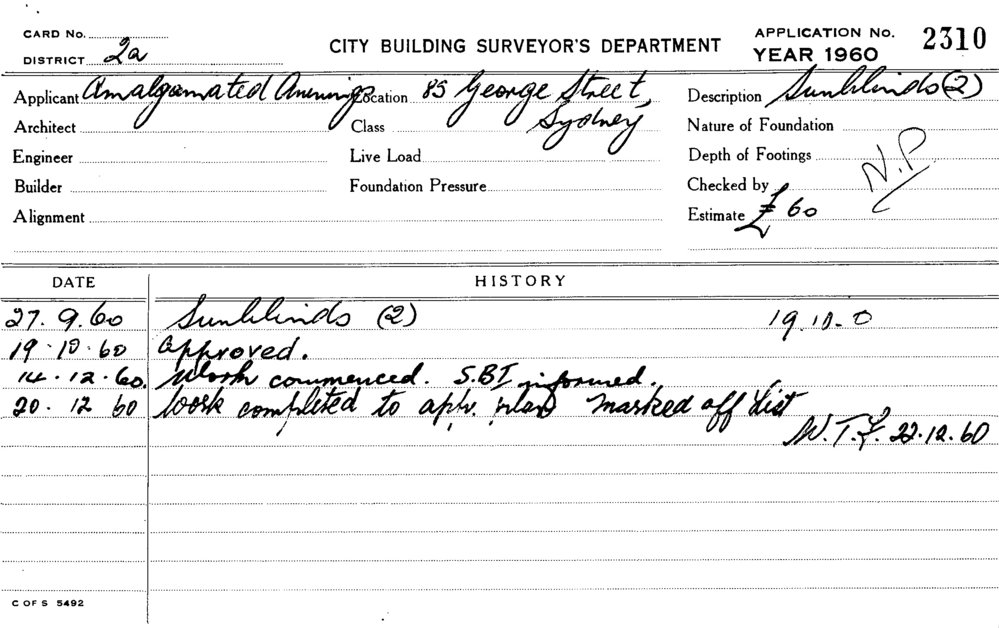 CARD No.
DISTRICT 2a
CITY BUILDING SURVEYOR'S DEPARTMENT
APPLICATION No. 2310
YEAR 1960
Applicant Amalgamated Awnings Location 85 George Street, Description Sunblinds (2)
Architect Class Sydney Nature of Foundation
Engineer Live Load Depth of Footings N.P
Builder Foundation Pressure Checked by
Alignment Estimate £ 60
DATE HISTORY
27. 9. 60 Sunblinds (2) 19.10-0
19.10.60 approved.
14.12.60. Work commenced. S.BI informed.
20.12 60 work completed to aptv. plan marked off List
W.T.F. 22.12.60
C OF S 5492